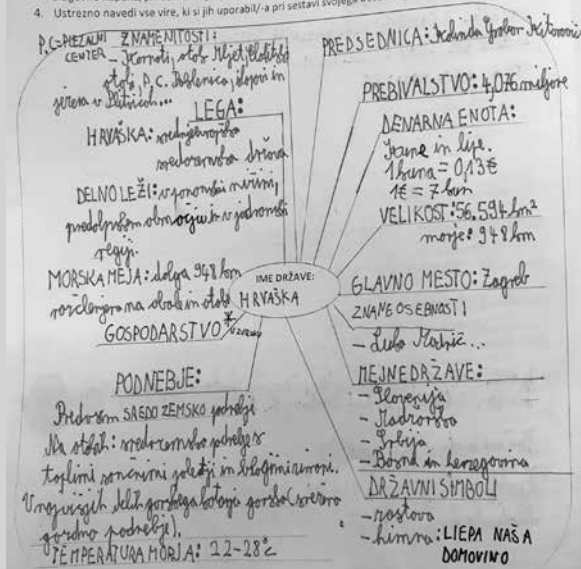 4. Ustrezno navedi vse vire, ki si jih uporabil/-a pri sestavi svojega
P.C=PLEZALNI CENTER
ZNAMENITOSTI:
- Kornati, otok Mljet, Elafitski
otoki, P.C. Paklenica, slapovi in
jezera v Plitvicah...
LEGA:
HRVAŠKA: srednjeevropsko
sredozemska država
DELNO LEŽI: v panonski nižini,
predalpskem območju in v jadranski
regiji.
MORSKA MEJA: dolga 948 km
razčlenjena na obale in otoke
GOSPODARSTVO *
PODNEBJE:
Predvsem SREDOZEMSKO podnebje
Na otokih: sredozemsko podnebje s
toplimi sončnimi poletji in blagimi zimami.
V najvišjih delih gorskega območja gorsko (snežno
gorsko podnebje).
TEMPERATURA MORJA: 22-28°C
IME DRŽAVE:
HRVAŠKA
PREDSEDNICA: Kolinda Grabar Kitarović
PREBIVALSTVO: 4,076 miljone
DENARNA ENOTA:
Kune in lipe.
1 kuna = 0,13€
1€ = 7 kun
VELIKOST: 56.594 km²
morje: 948 km
GLAVNO MESTO: Zagreb
ZNANE OSEBNOSTI
- Luka Modrić...
MEJNE DRŽAVE:
- Slovenija
- Madžarska
- Srbija
- Bosna in hercegovina
DRŽAVNI SIMBOLI
- zastava
- himna: LIEPA NAŠA
DOMOVINO